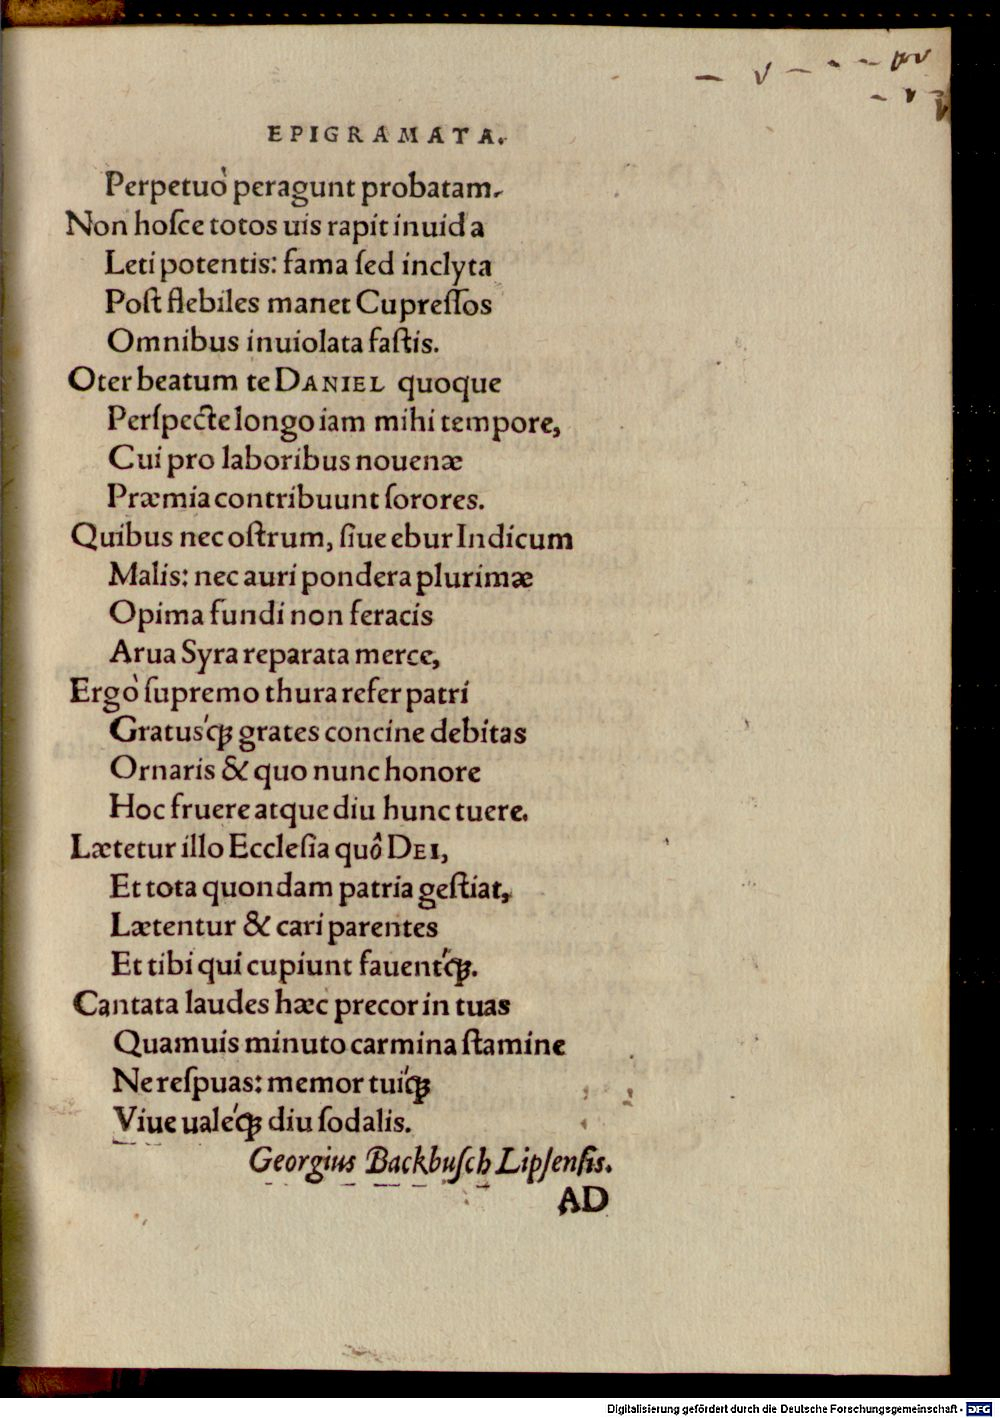 EPIGRAMATA.
Perpetuò peragunt probatam.
Non hoſce totos uis rapit inuida
Leti potentis: fama ſed inclyta
Poſt flebiles manet Cupreſſos
Omnibus inuiolata faſtis.
O ter beatum te DANIEL quoque
Perſpecte longo iam mihi tempore,
Cui pro laboribus nouenæ
Præmia contribuunt ſorores.
Quibus nec oſtrum, ſiue ebur Indicum
Malis: nec auri pondera plurimæ
Opima fundi non feracis
Arua Syra reparata merce,
Ergò ſupremo thura refer patri
Gratusq́ꝫ grates concine debitas
Ornaris & quo nunc honore
Hoc fruere atque diu hunc tuere.
Lætetur illo Eccleſia quô DEI,
Et tota quondam patria geſtiat,
Lætentur & cari parentes
Et tibi qui cupiunt fauentq́ꝫ.
Cantata laudes hæc precor in tuas
Quamuis minuto carmina ſtamine
Ne reſpuas: memor tuiq́ꝫ
Viue ualeq́ꝫ diu ſodalis.
Georgius Backbuſch Lipſenſis.
AD
Digitalisierung gefördert durch die Deutsche Forschungsgemeinschaft - DFG